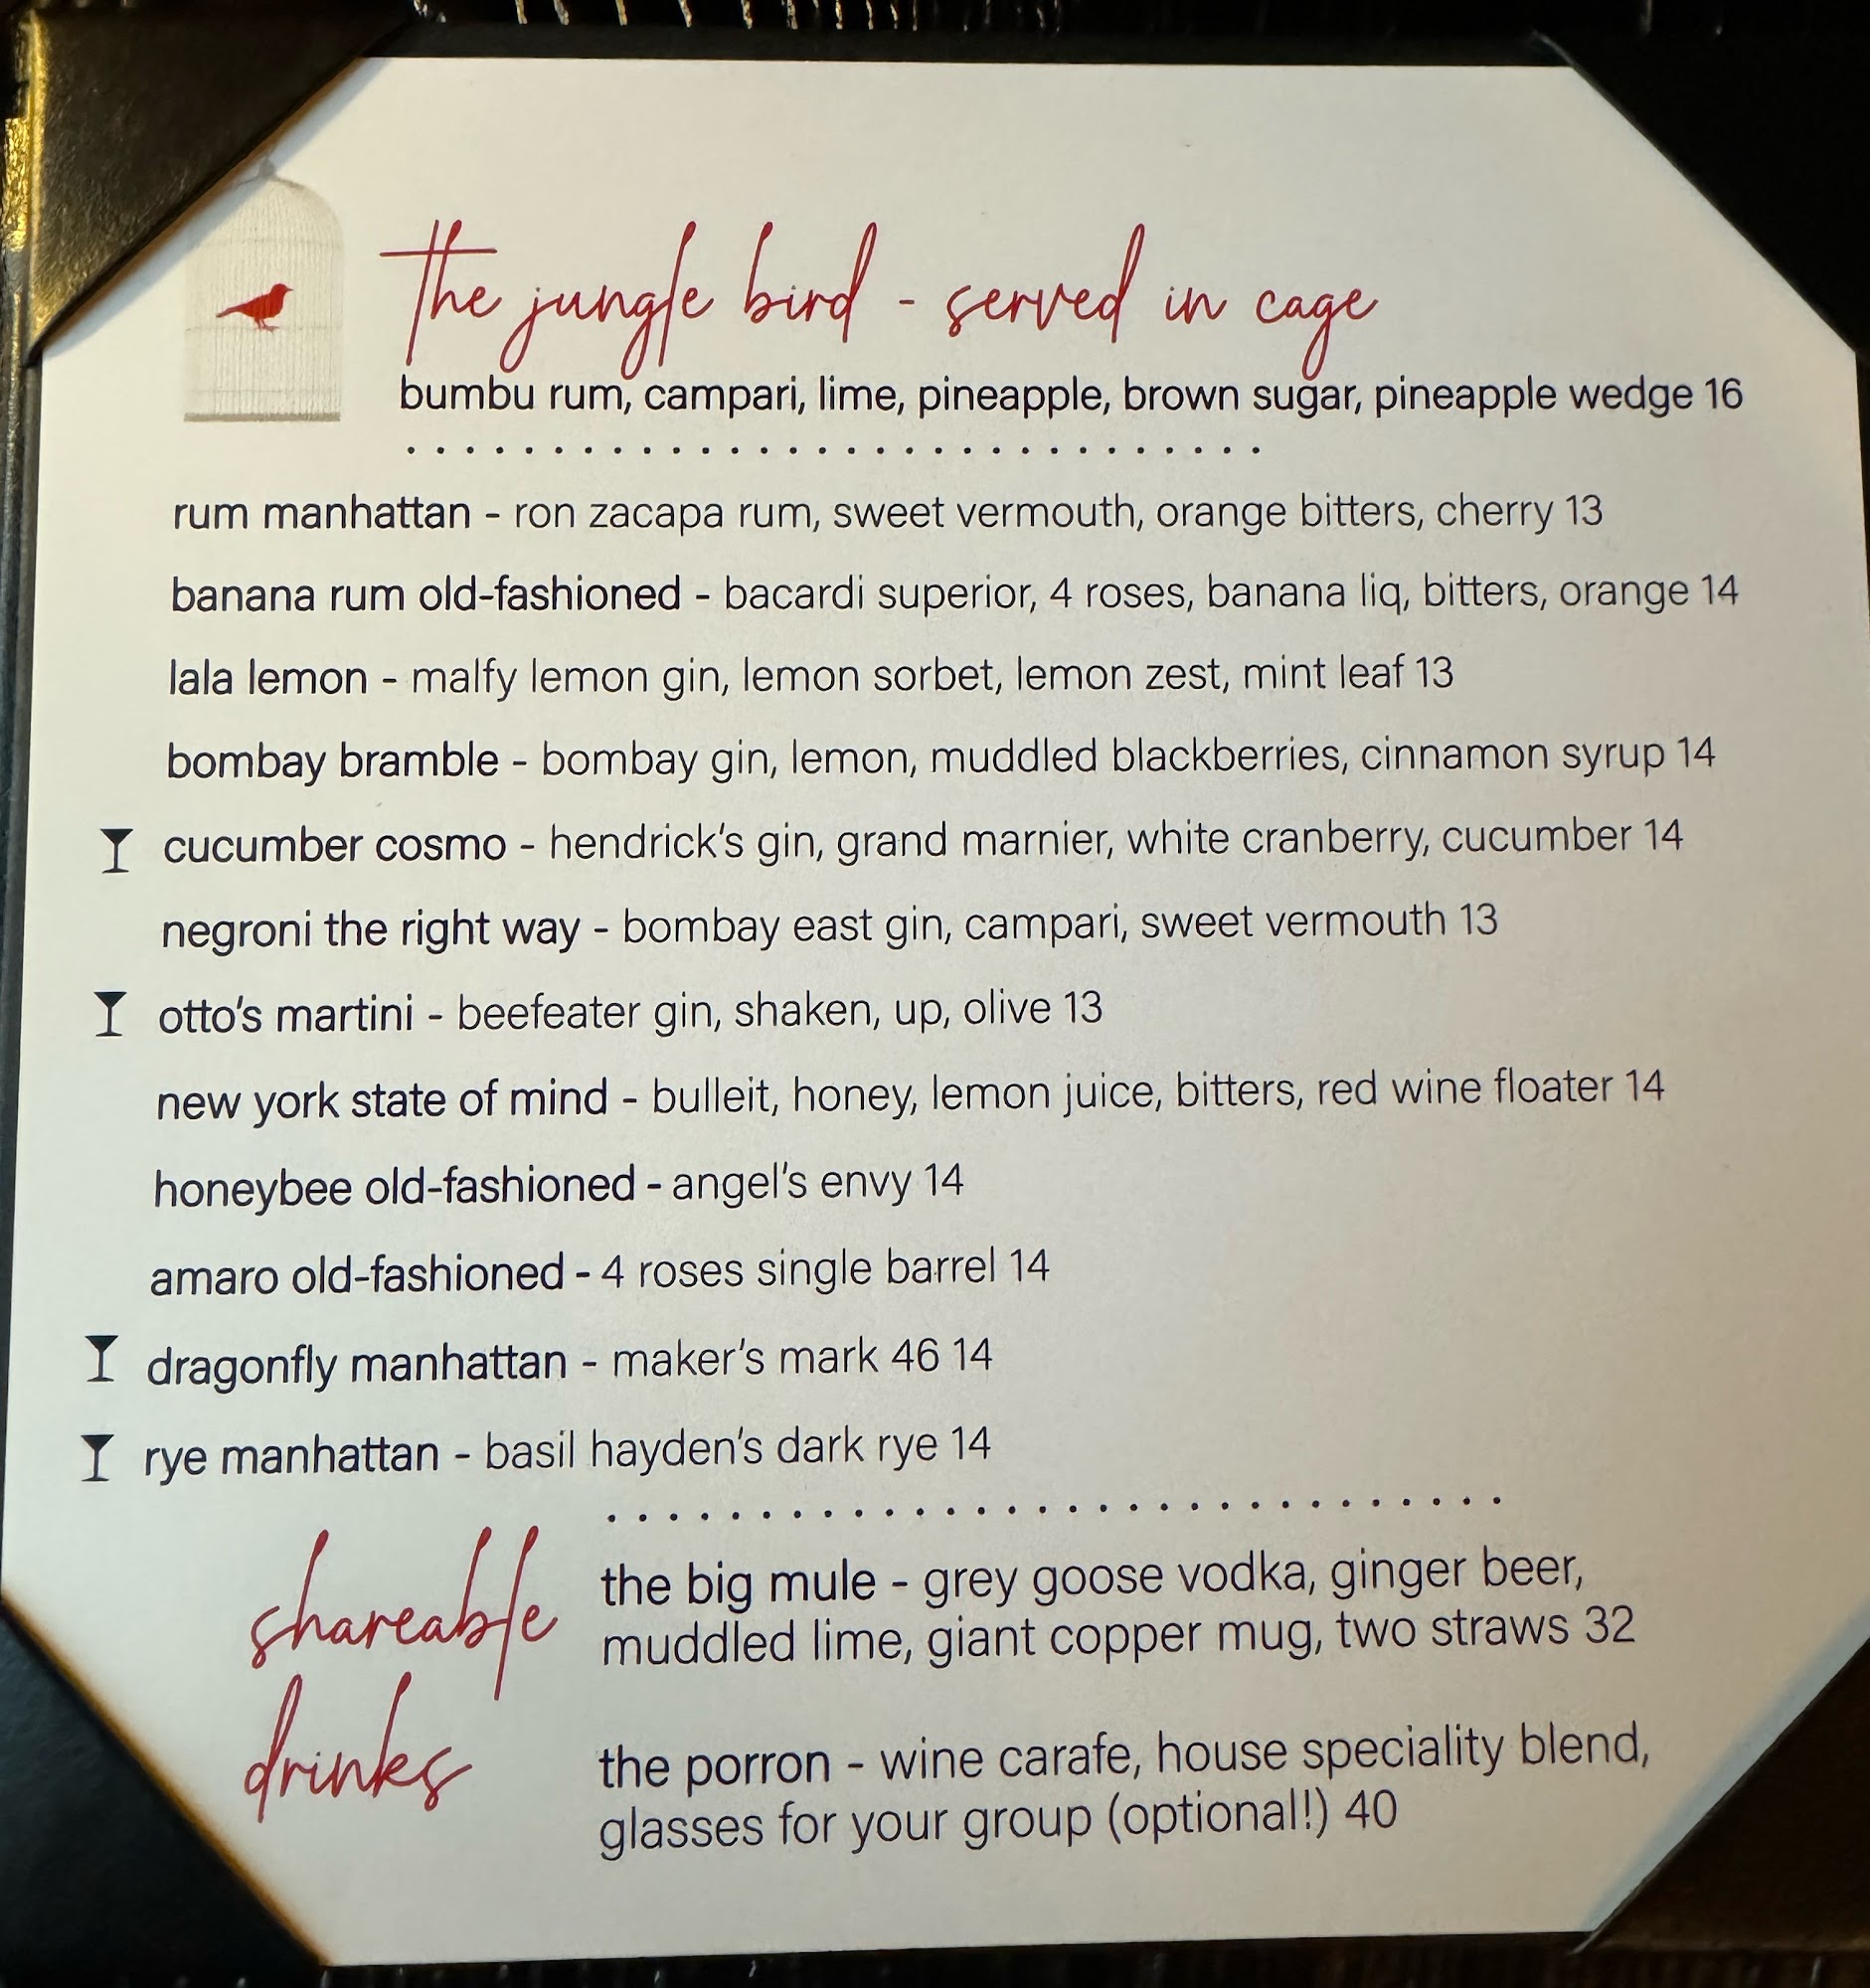 the jungle bird - served in cage
bumbu rum, campari, lime, pineapple, brown sugar, pineapple wedge 16
rum manhattan - ron zacapa rum, sweet vermouth, orange bitters, cherry 13
banana rum old-fashioned - bacardi superior, 4 roses, banana liq, bitters, orange 14
lala lemon - malfy lemon gin, lemon sorbet, lemon zest, mint leaf 13
bombay bramble - bombay gin, lemon, muddled blackberries, cinnamon syrup 14
cucumber cosmo - hendrick's gin, grand marnier, white cranberry, cucumber 14
negroni the right way - bombay east gin, campari, sweet vermouth 13
otto's martini - beefeater gin, shaken, up, olive 13
new york state of mind - bulleit, honey, lemon juice, bitters, red wine floater 14
honeybee old-fashioned - angel's envy 14
amaro old-fashioned - 4 roses single barrel 14
dragonfly manhattan - maker's mark 46 14
rye manhattan - basil hayden's dark rye 14
shareable
drinks
the big mule - grey goose vodka, ginger beer,
muddled lime, giant copper mug, two straws 32
the porron - wine carafe, house speciality blend,
glasses for your group (optional!) 40